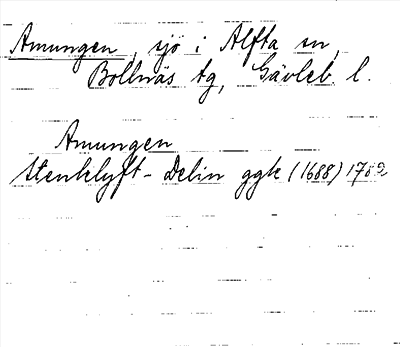 Amungen, sjö i Alfta sn,
Bollnäs tg, Gävleb. l.
Amungen
Utenklyft - Delin ggk (1688) 1789